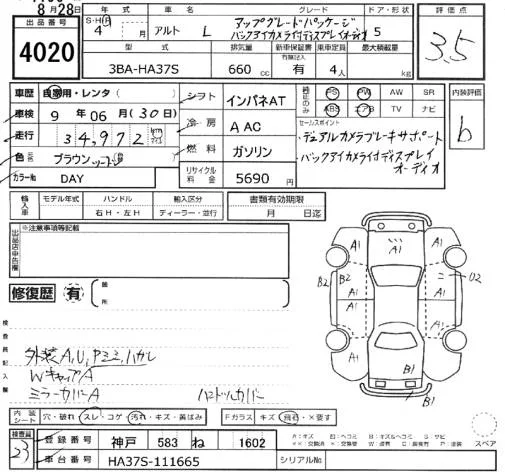 8月28日
出品番号
4020
年式 車名 グレード ドア・形状 評価点
S・H・R 4年 月 アルト L アップグレードパッケージ 5
バックアイカメラ付ディスプレイオーディオ
3.5
型式 排気量 新車保証書 乗車定員 最大積載量
有無記入
3BA-HA37S 660 cc 有 4人 kg
車歴 自家用・レンタ( シフト インパネAT 純正のみ PS PW AW SR 内装評価
ABS エアB TV ナビ
車検 9年 06月(30日)
b
冷房 A AC セールスポイント
走行 34,972 km
・デュアルカメラブレーキサポート
色 ブラウン ツートン 燃料 ガソリン
・バックアイカメラ付ディスプレイ
オーディオ
カラーNo DAY リサイクル料金 5690円
輸入車 モデル年式 ハンドル 輸入区分 書類有効期限
右H・左H ディーラー・並行 月 日迄
出品店申告欄 ※注意事項等記載
修復歴 有 箇所
A1 A1 A1
B2 B2 A1 A1 U2
A1 A1
A1 A1
B1
B1
検査員記入欄
外装A,U,Pミミ,ハガレ
WキャップA
ミラーカバーA ハンドルカバー
内装シート 穴・破れ・スレ・コゲ・汚れ・キズ・黄ばみ Fガラス キズ・飛石・X要す
検査員 23
登録番号 神戸 583 ね 1602
車台番号 HA37S-111665 シリアルNo
スペア